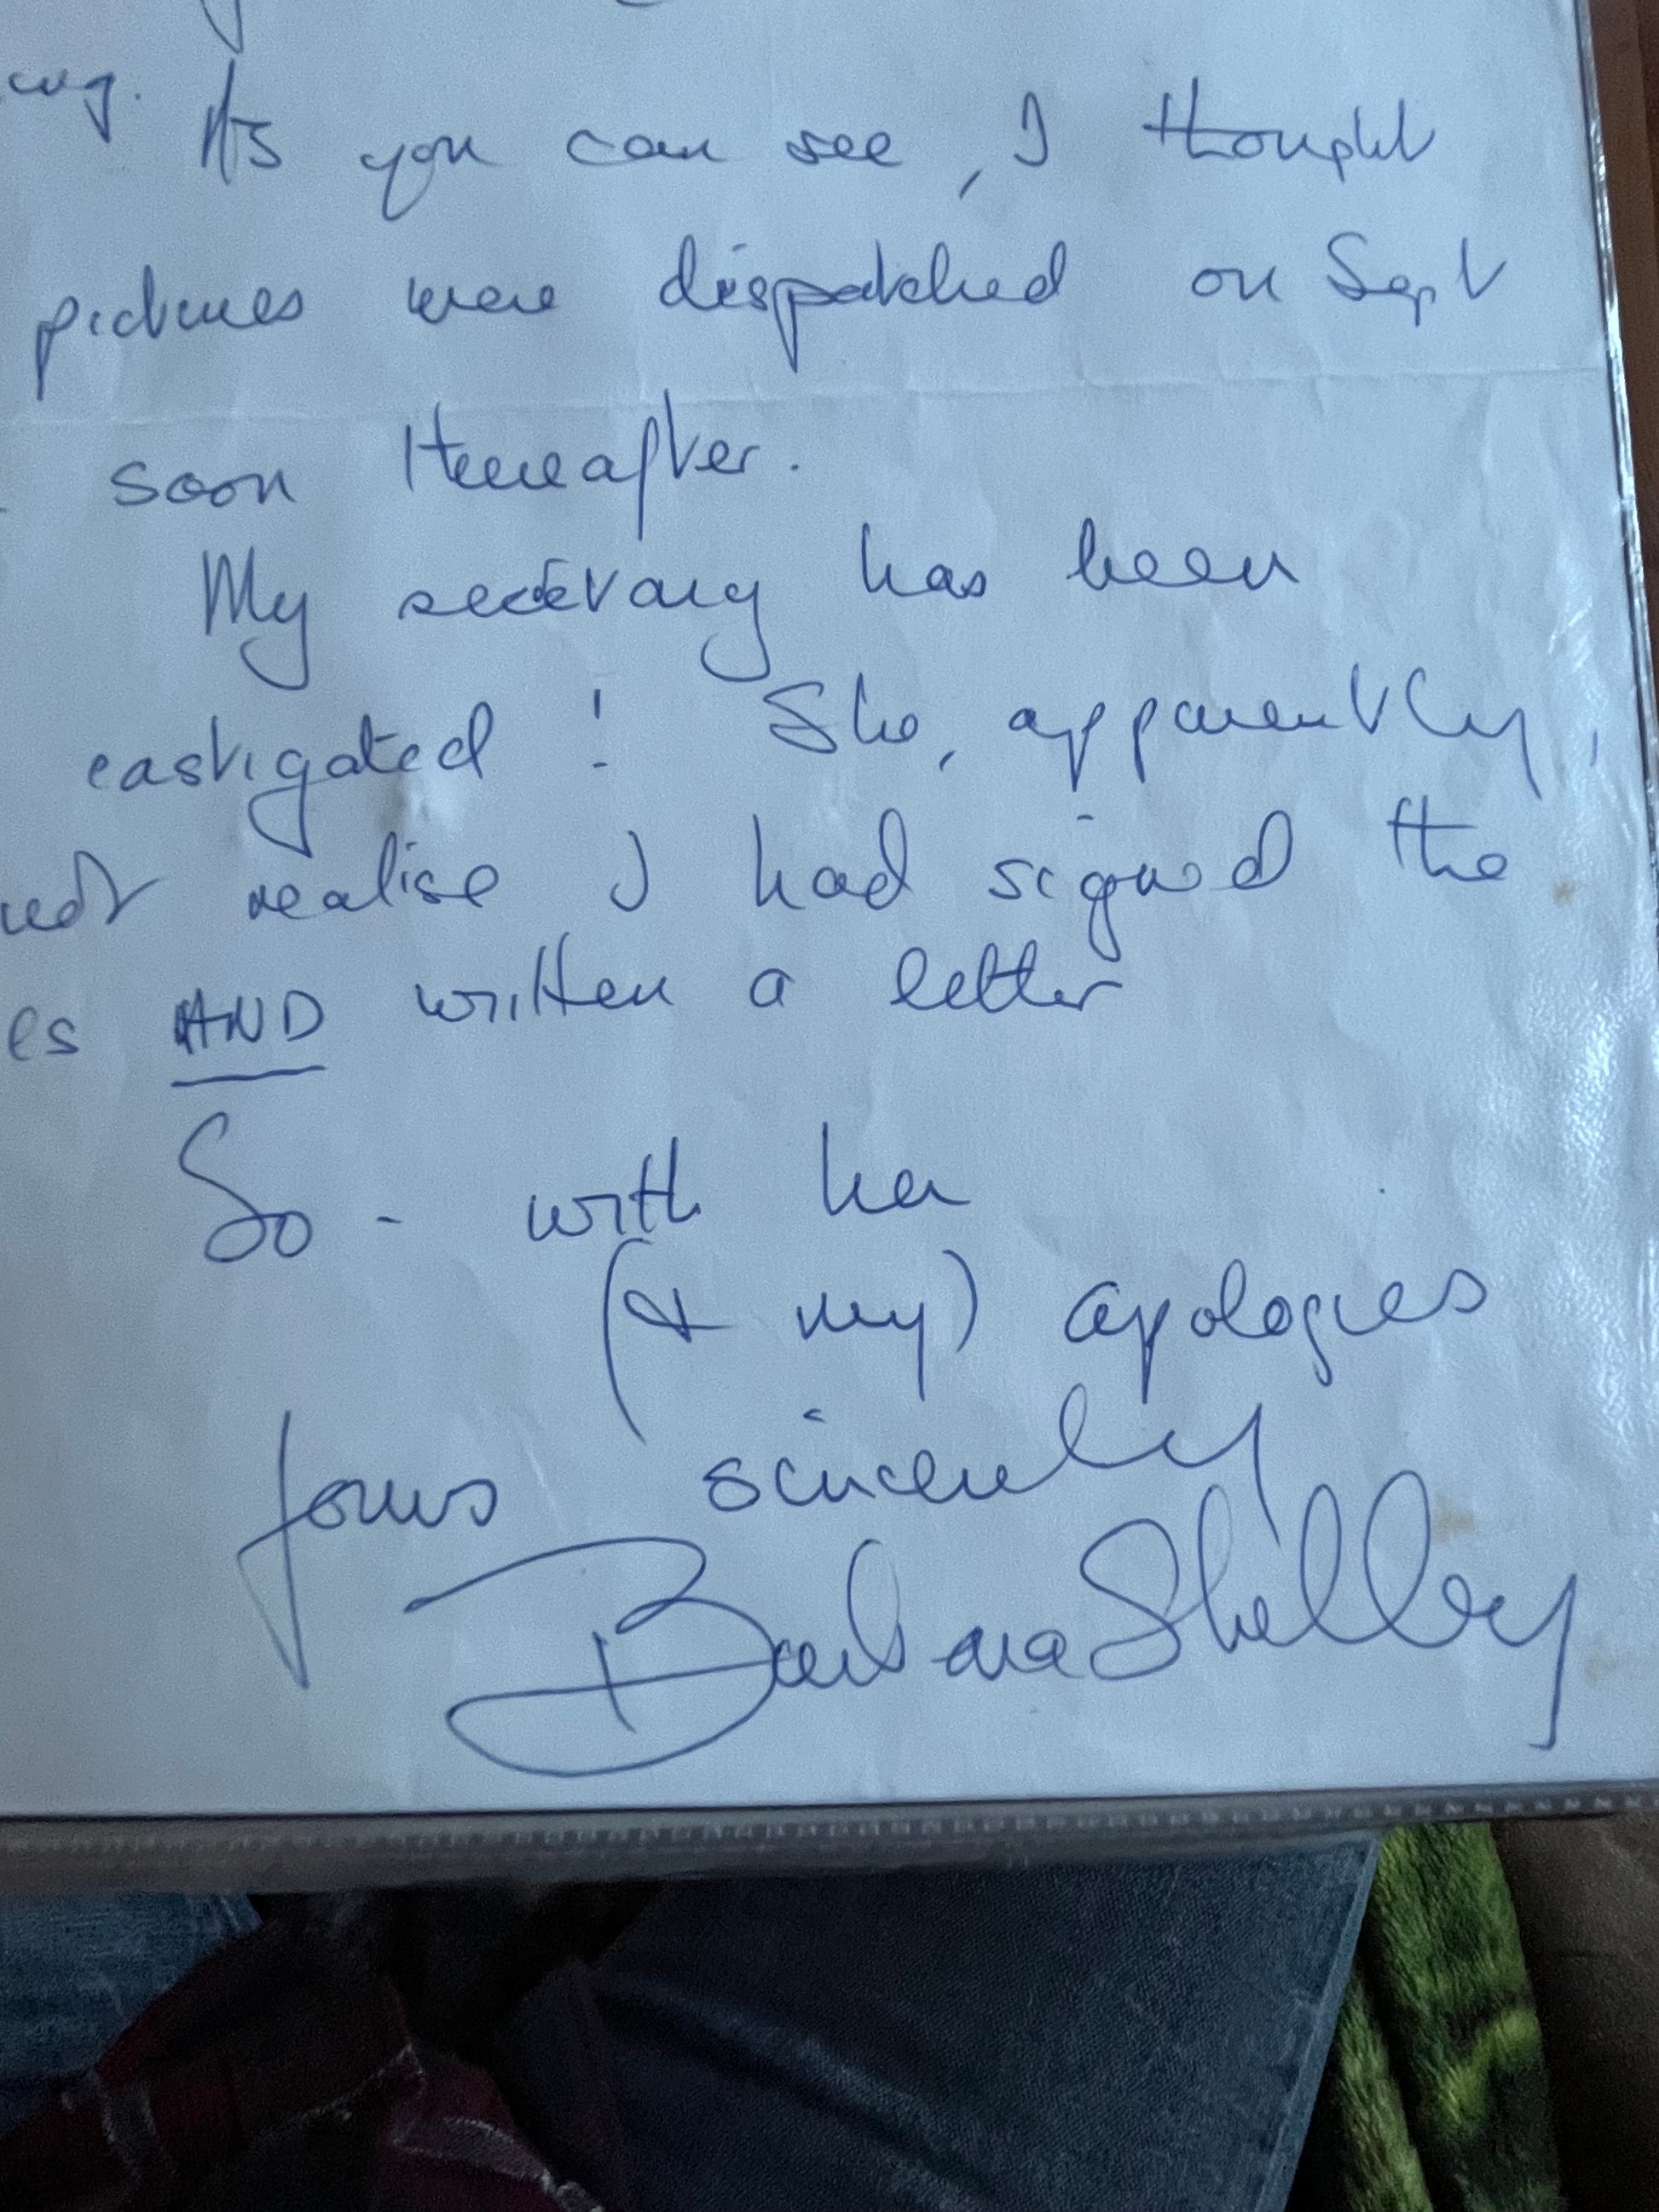 As you can see, I thought
pictures were dispatched on Sept
soon thereafter.
My secretary has been
castigated! She, apparently,
not realise I had signed the
es AND written a letter
So - with her
(& my) apologies
Yours sincerely
Barbara Shelley